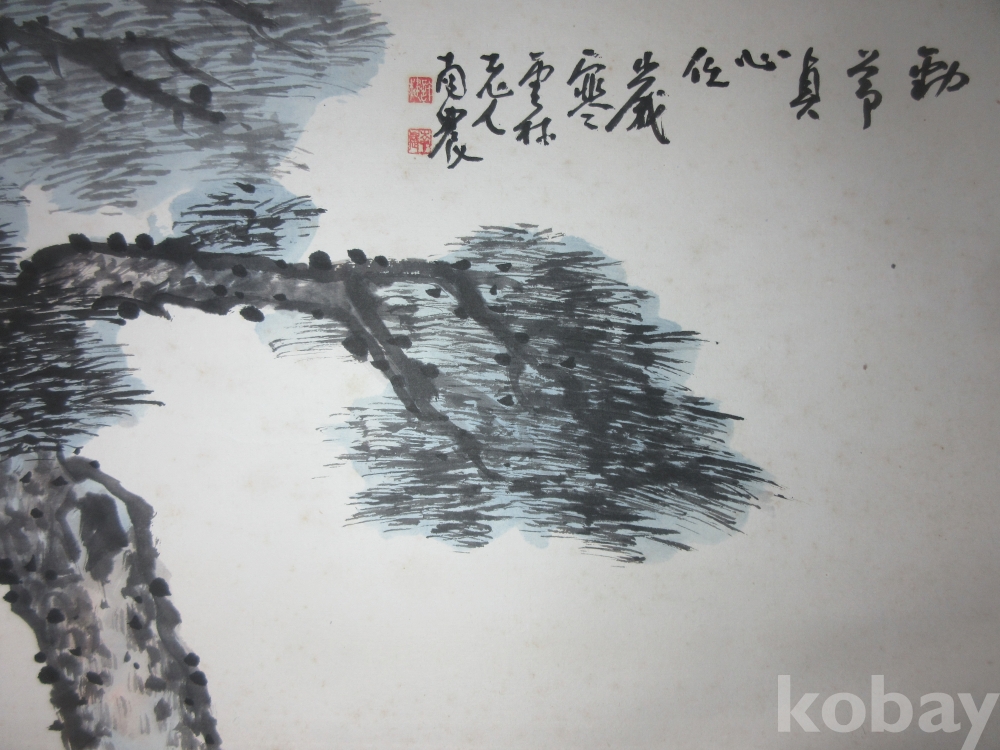 勁
節
貞
心
任
歲
寒
雲林
老人
南農
kobay